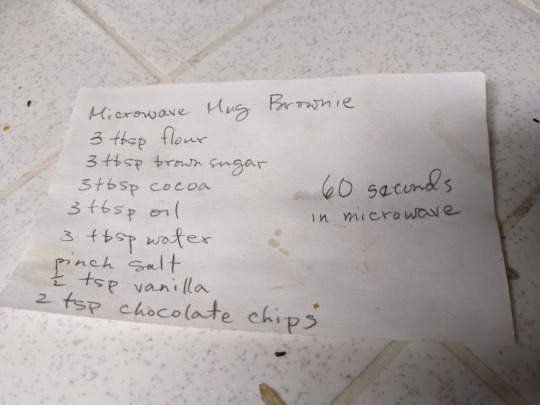 Microwave Mug Brownie
3 tbsp flour
3 tbsp brown sugar
3 tbsp cocoa
3 tbsp oil
3 tbsp water
pinch salt
½ tsp vanilla
2 tsp chocolate chips
60 seconds
in microwave